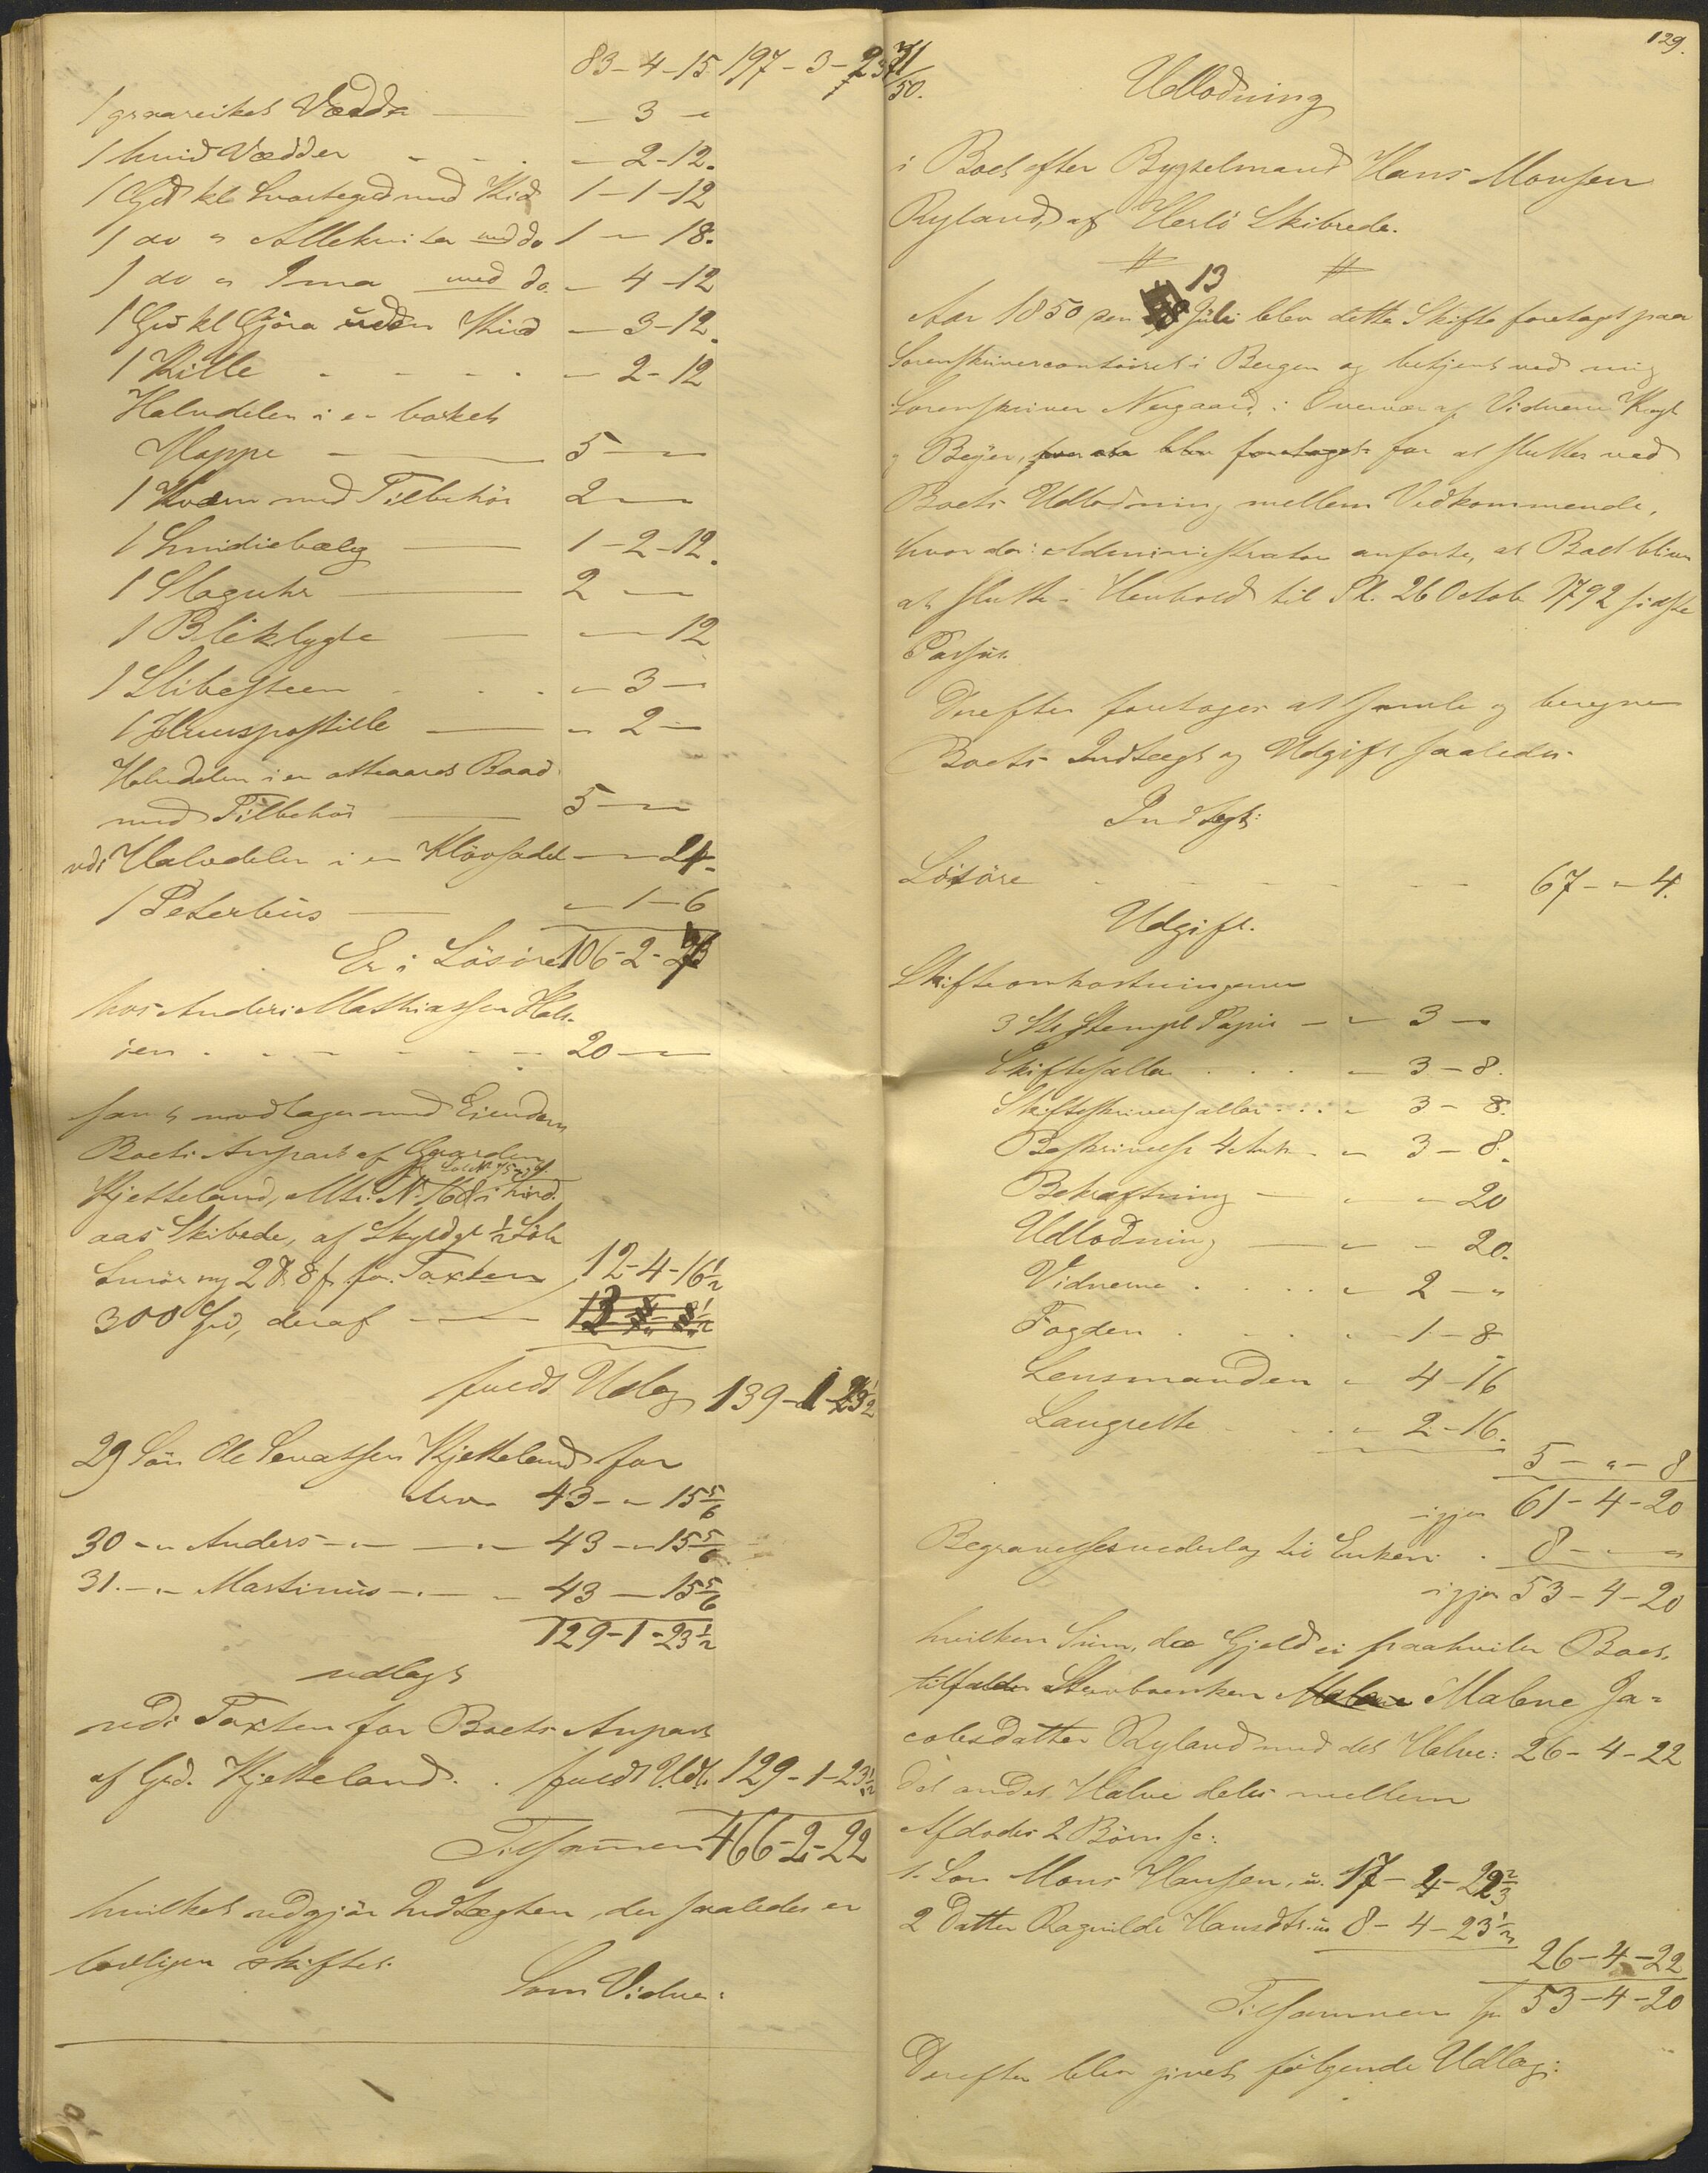 83-4-15 197-3-23
1 graareiket Vædder — — 3 —
1 hvid Vædder - - - — 2-12.
1 Ged kl Svarteged med Kid 1-1-12
1 do " Allekvita med do 1 — 18.
1 do " Ima med do. — 4-12
1 Ged kl Gjöra uden Kid — 3-12.
1 Kille - - - — 2-12
Halvdelen i en borket
Hoppe — — 5 — —
1 Kværn med Tilbehör 2 — —
1 Smidiebælg — 1-2-12.
1 Slaguhr — 2 —
1 Bliklygte — — — 12
1 Slibesteen - - - — 3 —
1 Huuspostille — " 2 —
Halvdelen i en otteaaret Baad
med Tilbehör — 5 — —
vdi Halvdelen i en Klövsadel — — 24-
1 Peterbüs — — 1-6
Er i Lösöre 106-2-23
hos Anders Mathiassen Hals-
öen - - - - - 20 — —
han modtager med Eiendom
Boets Anpart af Gaarden
Lob No 75
Kjetteland, Mtr. N. 168 i Lind-
aas Skibrede, af Skyld gl. ½ Löb
Smör ny 2 D. 8 s. for Taxten 12-4-16½
300 Spd, deraf —
fuldt Udlæg 139-1-23½
29 Sön Ole Sevatsen Kjetteland for
Arv 43 - " 15 5/6
30 - " Anders - " - — " - 43 - " 15 5/6
31. - " - Martinus - " - 43 — 15 5/6
129-1-23½
udlagt
vdi Taxten for Boets Anpart
af Grd. Kjetteland. . fuldt Udl. 129-1-23½
Tilsammen 466-2-22
hvilket udgjör Indtægten, der saaledes er
lovligen skiftet.
Som Vidne:
129.
31/7 50.
Udlodning
i Boet efter Bygselmand Hans Monsen
Ryland, af Herlö Skibrede.
13
Aar 1850 den Juli blev dette Skifte foretaget paa
Sorenskrivercontoiret i Bergen og betjent ved mig
Sorenskriver Nergaard, i Overvær af Vidnerne Krogh
og Beyer, for at sluttes ved
Boets Udlodning mellem Vedkommende,
hvor da: Administrator anförte, at Boet bliver
at slutte i Henhold til Pl. 26 Octob. 1792 sidste
Passus.
Derefter foretages at samle og beregne
Boets Indtægt og Udgift saaledes
Indtægt:
Lösöre - - - - - 67 - " - 4.
Udgift.
Skifteomkostningerne
3 Stk Stemplt Papir - " 3 —
Skiftesallar . . . — 3-8.
Skifteskriversallar . . . " 3-8.
Beskrivelse 4 Ark — " 3-8.
Bekræftning — " — 20
Udlodning — " — 20.
Vidnerne . . . . " 2 — "
Fogden . . . " - 1-8
Lensmanden " 4-16
Laugrette . . " 2-16.
5 - " - 8
igjen 61-4-20
Begravelsesvederlag til Enken . 8 - " - "
igjen 53-4-20
hvilken Sum, da Gjeld ei paahviler Boet,
tilfalder Stervboenken Malene Ja=
cobsdatter Ryland med det Halve: 26-4-22
det andet Halve deles mellem
Afdödes 2 Börn sc:
1. Sön Mons Hansen, u. 17-4-22⅔
2 Datter Ragnilde Hansdtr. u. 8-4-23⅓
26-4-22
Tilsammen Sp 53-4-20
Derefter blev givet fölgende Udlæg: